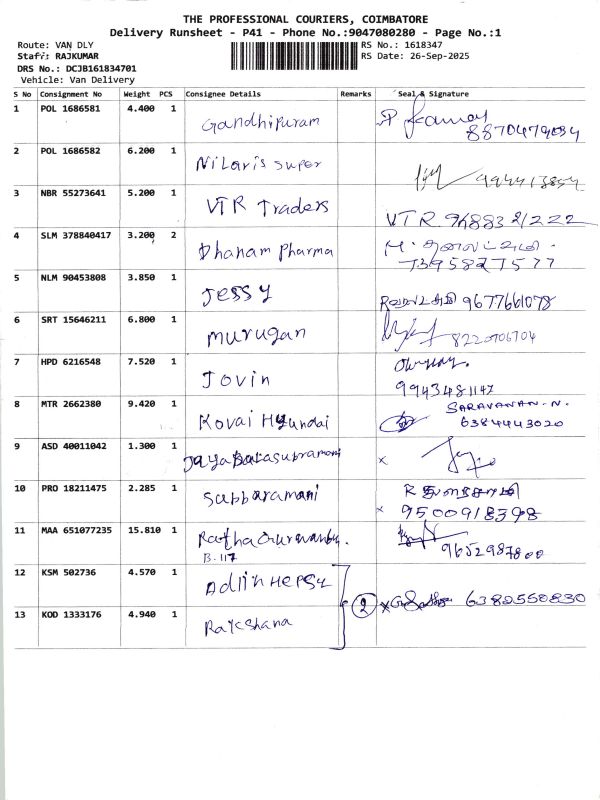 THE PROFESSIONAL COURIERS, COIMBATORE
Delivery Runsheet - P41 - Phone No.:9047080280 - Page No.:1
Route: VAN DLY
RS No.: 1618347
Staff: RAJKUMAR
RS Date: 26-Sep-2025
DRS No.: DCJB161834701
Vehicle: Van Delivery
S No Consignment No Weight PCS Consignee Details Remarks Seal & Signature
1 POL 1686581 4.400 1 Gandhipuram
8870479084
2 POL 1686582 6.200 1 Nilaris super
3 NBR 55273641 5.200 1 VTR Traders
VTR
4 SLM 378840417 3.200 2 Dhanam Pharma
7395827577
5 NLM 90453808 3.850 1 Jessy
9677661078
6 SRT 15646211 6.800 1 murugan
8220706704
7 HPD 6216548 7.520 1 Jovin
9943481147
8 MTR 2662380 9.420 1 Kovai Hyundai
SARAVANAN.N.
6384443020
9 ASD 40011042 1.300 1 Jaya Balasubramani x
10 PRO 18211475 2.285 1 Subbaramani
x 9500918398
11 MAA 651077235 15.810 1
B.117
9652987800
12 KSM 502736 4.570 1 Adlin Hepsy
2 x 6382550830
13 KOD 1333176 4.940 1 Rakshana